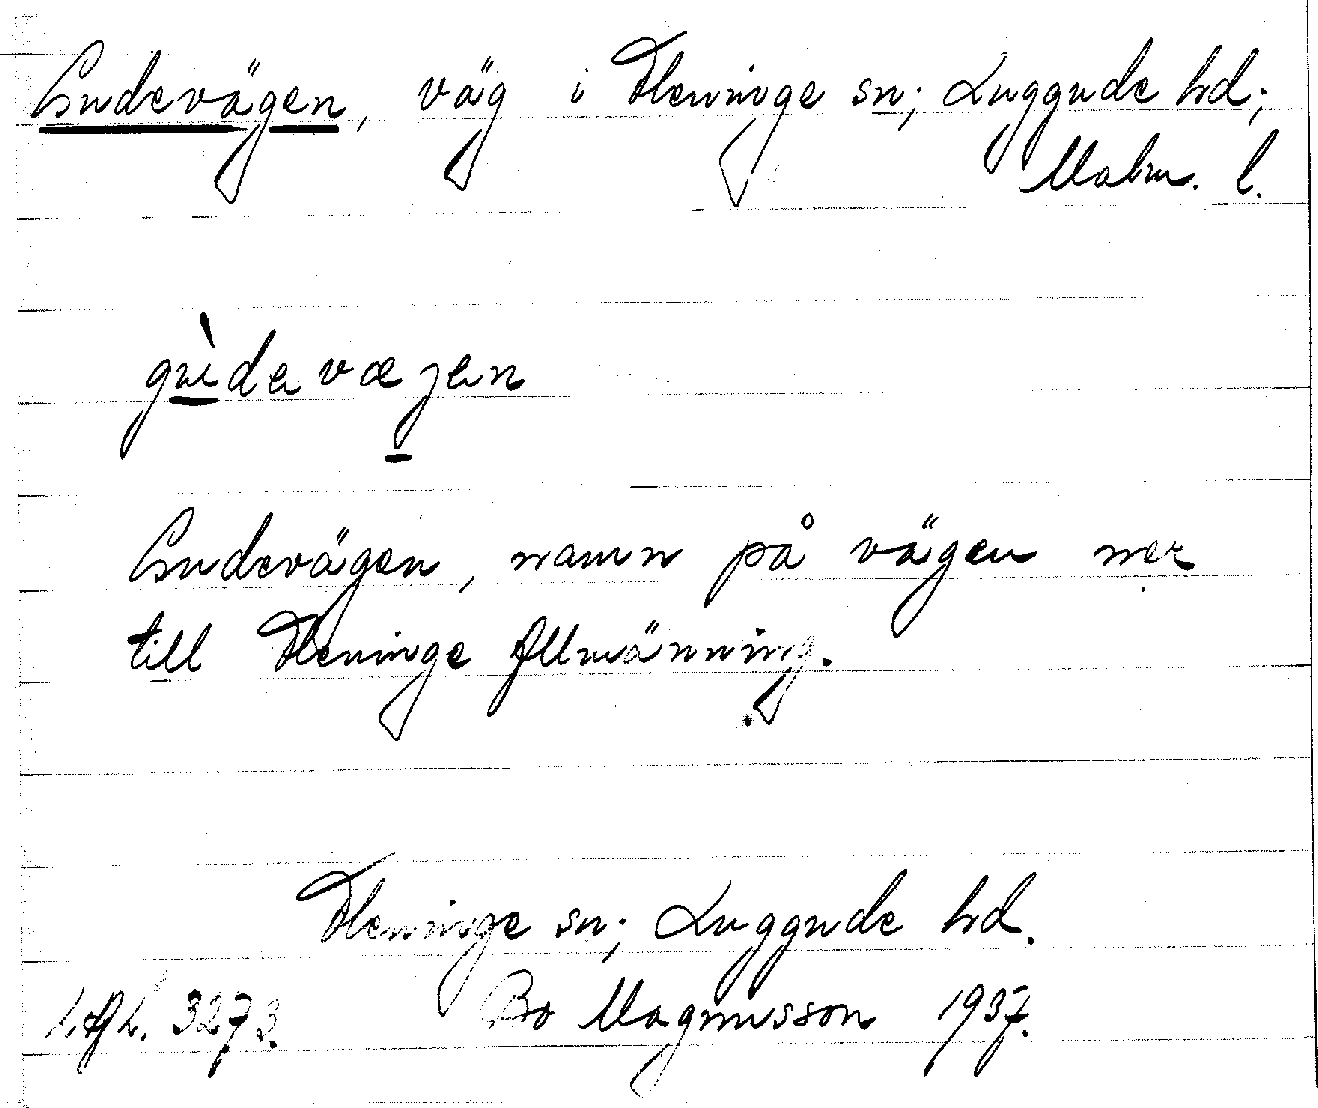 Gudevägen, väg i Fleninge sn; Luggude hd;
Malm. l.
Gudevägen, namn på vägen ner
till Fleninge Allmänning.
Fleninge sn; Luggude hd.
LAL. 3273. Bo Magnusson 1937.